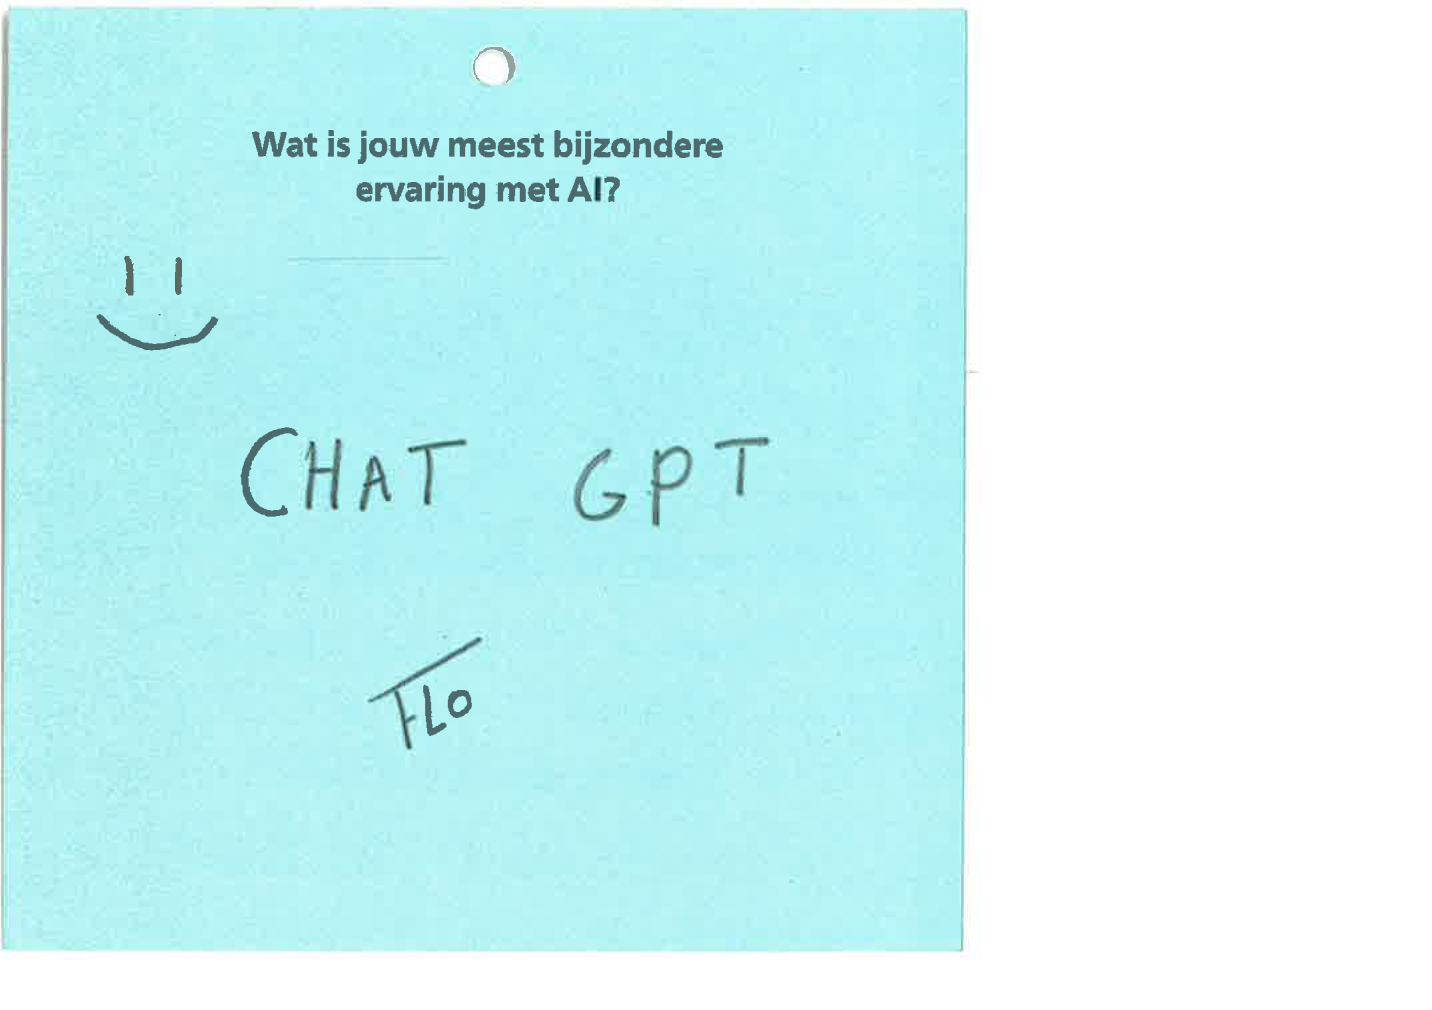 Wat is jouw meest bijzondere
ervaring met AI?
CHAT GPT
FLO